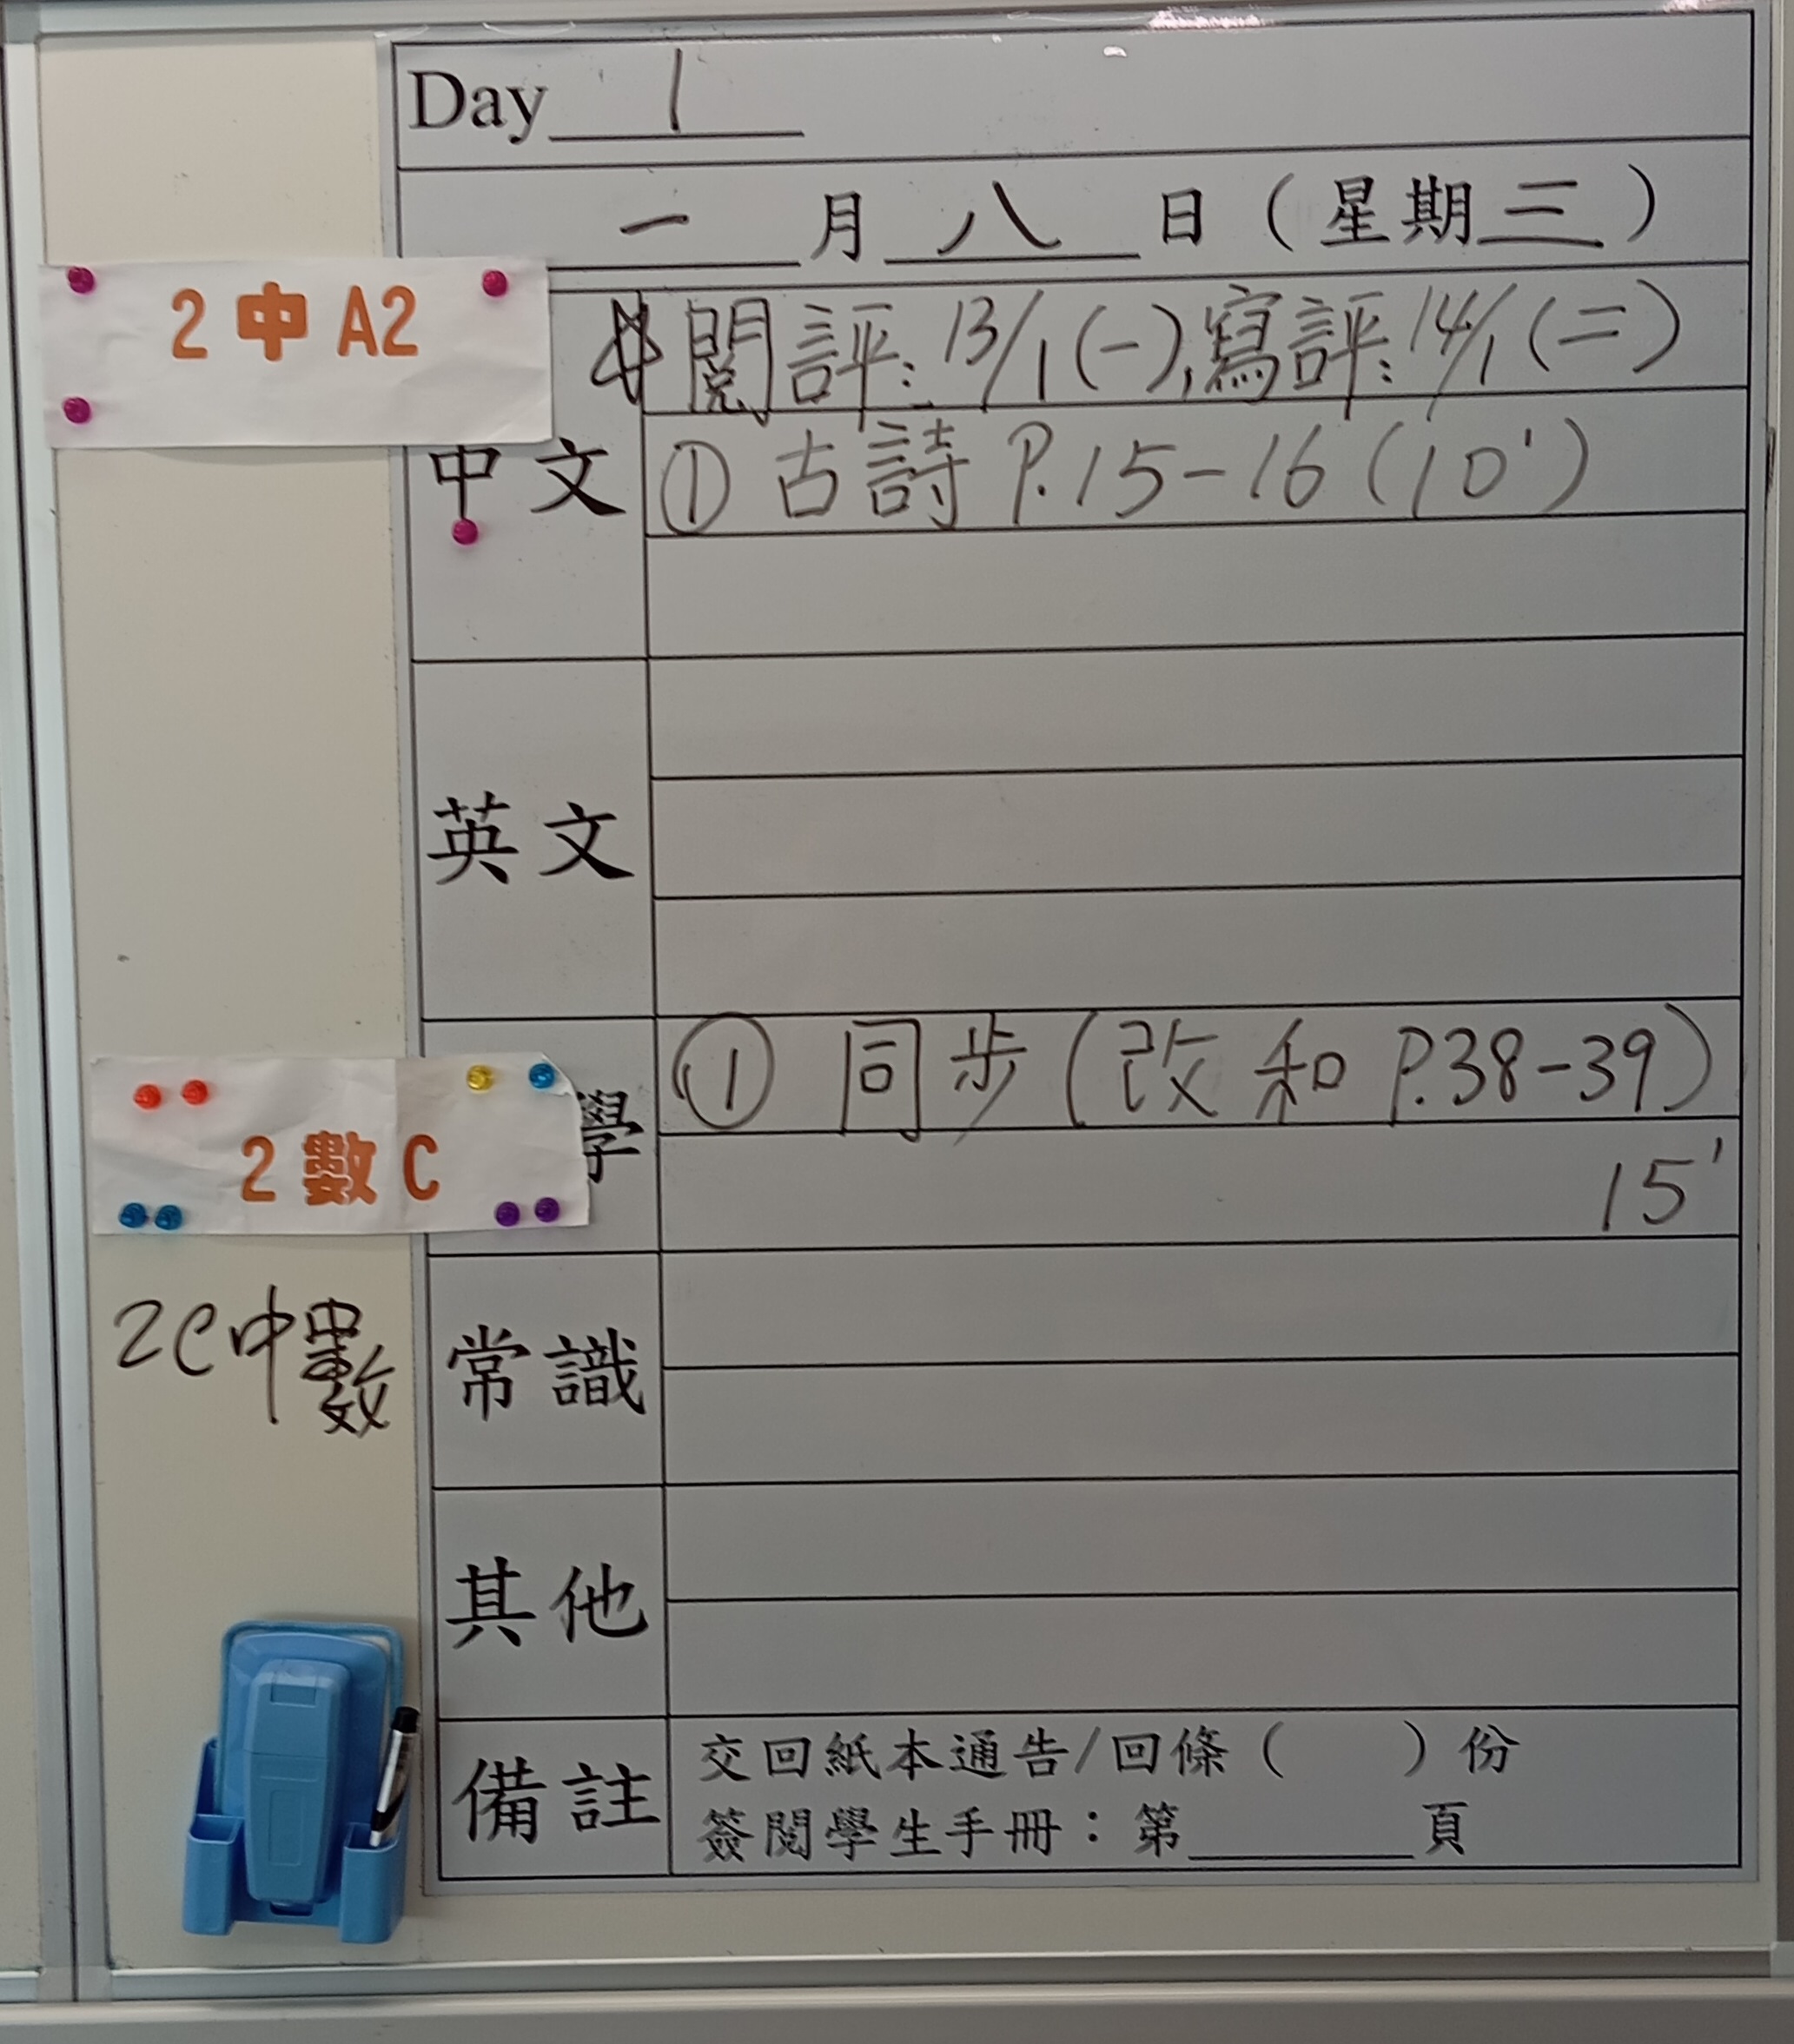 Day 1
一 月 八 日 ( 星期 三 )
2 中 A2
閱評: 13/1 (一), 寫評: 14/1 (二)
中文
① 古詩 P.15-16 (10')
英文
① 同步 (改和 P.38-39)
學
2 數 C
15'
2C中數
常識
其他
備註
交回紙本通告/回條 ( ) 份
簽閱學生手冊：第 頁